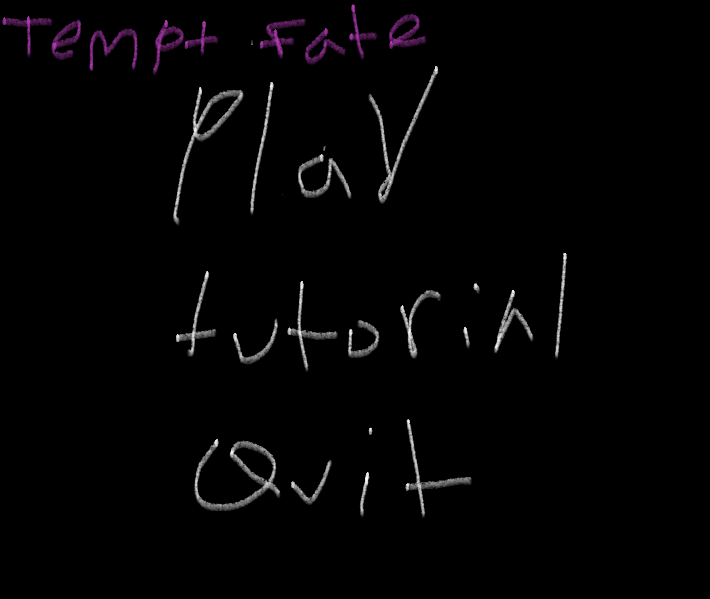 Tempt Fate
Play
tutorial
Quit